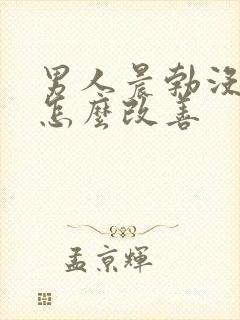 男人晨勃没
怎麼改善
孟京輝